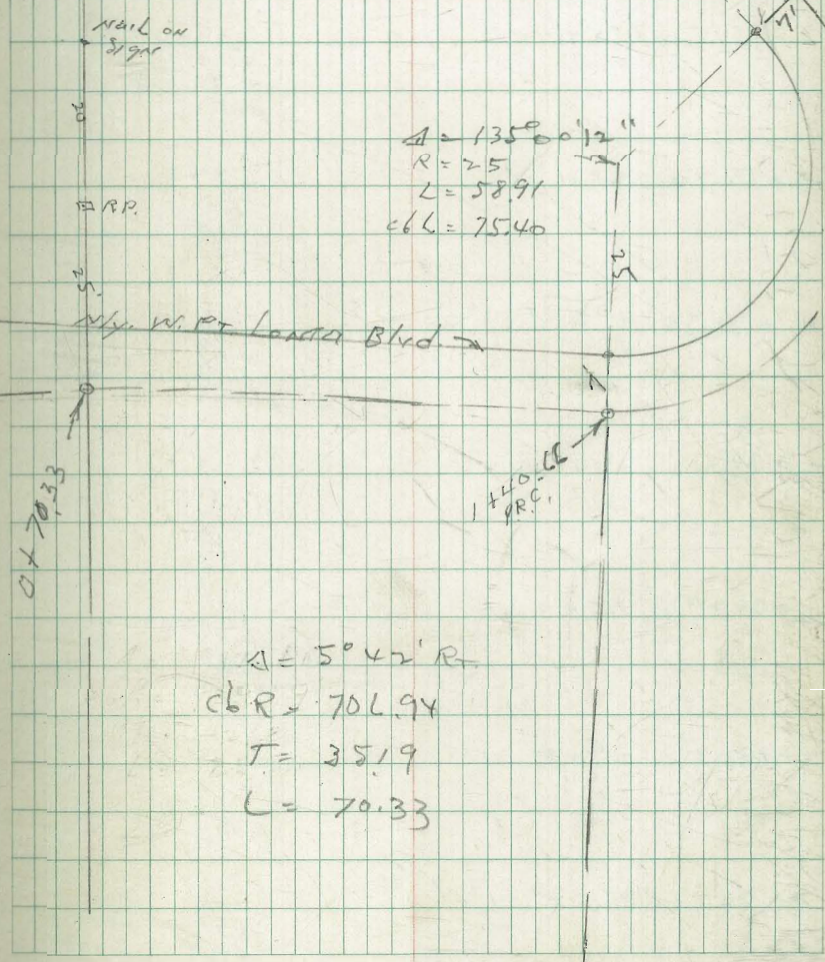 Nail on
Sign
7'
20
Δ = 135°00'12"
R = 25
L = 58.91
cb L = 75.40
R.P.
25
25'
Nly. W. Pt Loma Blvd.
7
0+70.33
1+40.66
P.R.C.
Δ = 5°42' Rt.
cb R = 706.94
T = 35.19
L = 70.33